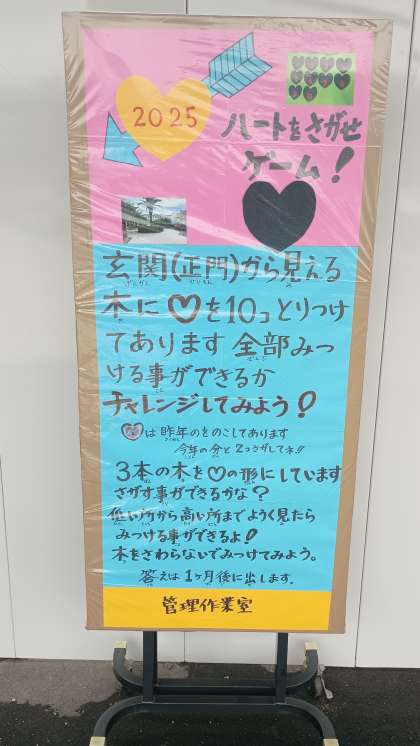 2025
ハートをさがせ
ゲーム!
玄関(正門)から見える
げんかん せいもん み
木に♡を10コとりつけ
き
てあります 全部みつ
ぜんぶ
ける事ができるか
こと
チャレンジしてみよう!
は昨年のをのこしてあります
さくねん
今年の分と2コさがしてネ!!
3本の木を♡の形にしています
さがす事ができるかな?
低い所から高い所までようく見たら
みつける事ができるよ!
木をさわらないでみつけてみよう。
答えは1ヶ月後に出します。
管理作業室